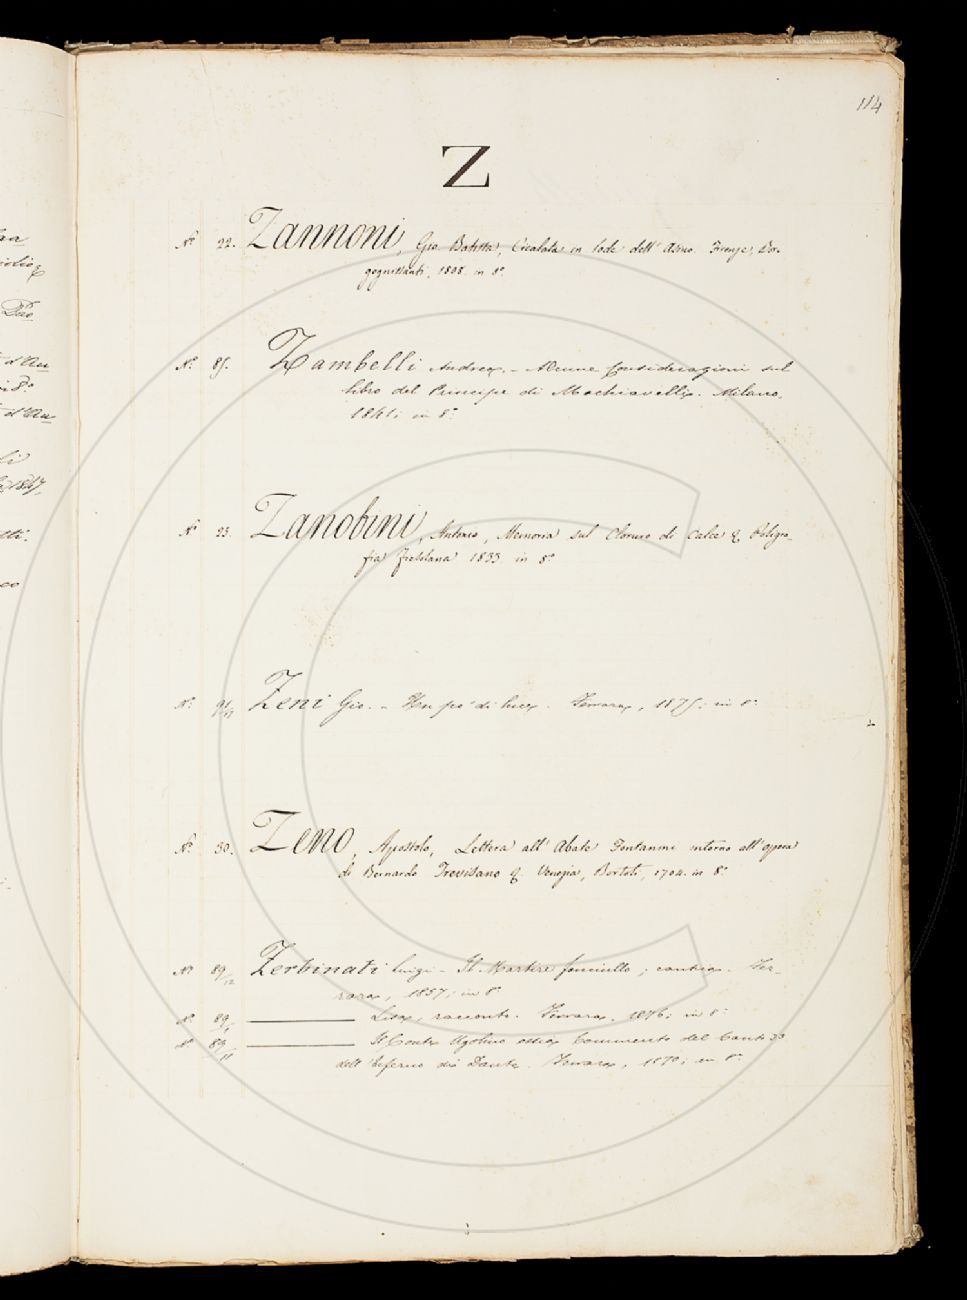 114
Z
N.° 22. Zannoni, Gio. Batista, Cicalata in lode dell' Asino. Firenze, Bor-
gognissanti, 1808. in 8.°
N.° 85. Zambelli Andrea. - Alcune considerazioni sul
libro del Principe di Machiavelli. Milano,
1841; in 8.°
N.° 23. Zanobini, Antonio, Memoria sul Cloruro di Calce & Poligra-
fia Fiesolana 1833. in 8.°
N.° Zeni Gio. - Un po' di luce. Ferrara, 1875; in 8.°
N.° 30. Zeno, Apostolo, Lettera all' Abate Fontanini intorno all' opera
di Bernardo Trevisano & Venezia, Bortoli, 1704. in 8.°
N.° 89/12 Zerbinati Luigi - Il Martire fanciullo; cantica. Fer-
rara, 1857; in 8.°
N.° 89 Lisa, racconto. Ferrara, 1876; in 8.°
N.° 89/11 Il Conte Ugolino ossia Commento del Canto 33
dell' Inferno di Dante. Ferrara, 1870; in 8.°